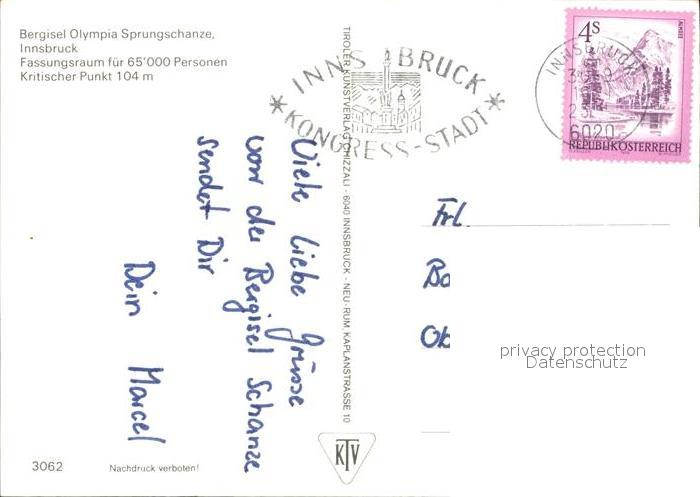 Bergisel Olympia Sprungschanze,
Innsbruck
Fassungsraum für 65'000 Personen
Kritischer Punkt 104 m
INNSBRUCK
KONGRESS-STADT
INNSBRUCK
6020
4S
ALMSEE
REPUBLIK ÖSTERREICH
TIROLER KUNSTVERLAG CHIZZALI · 6040 INNSBRUCK - NEU-RUM, KAPLANSTRASSE 10
Viele liebe Grüsse
von der Bergisel Schanze
sendet Dir
Dein Marcel
Frl.
privacy protection
Datenschutz
KTV
3062
Nachdruck verboten!